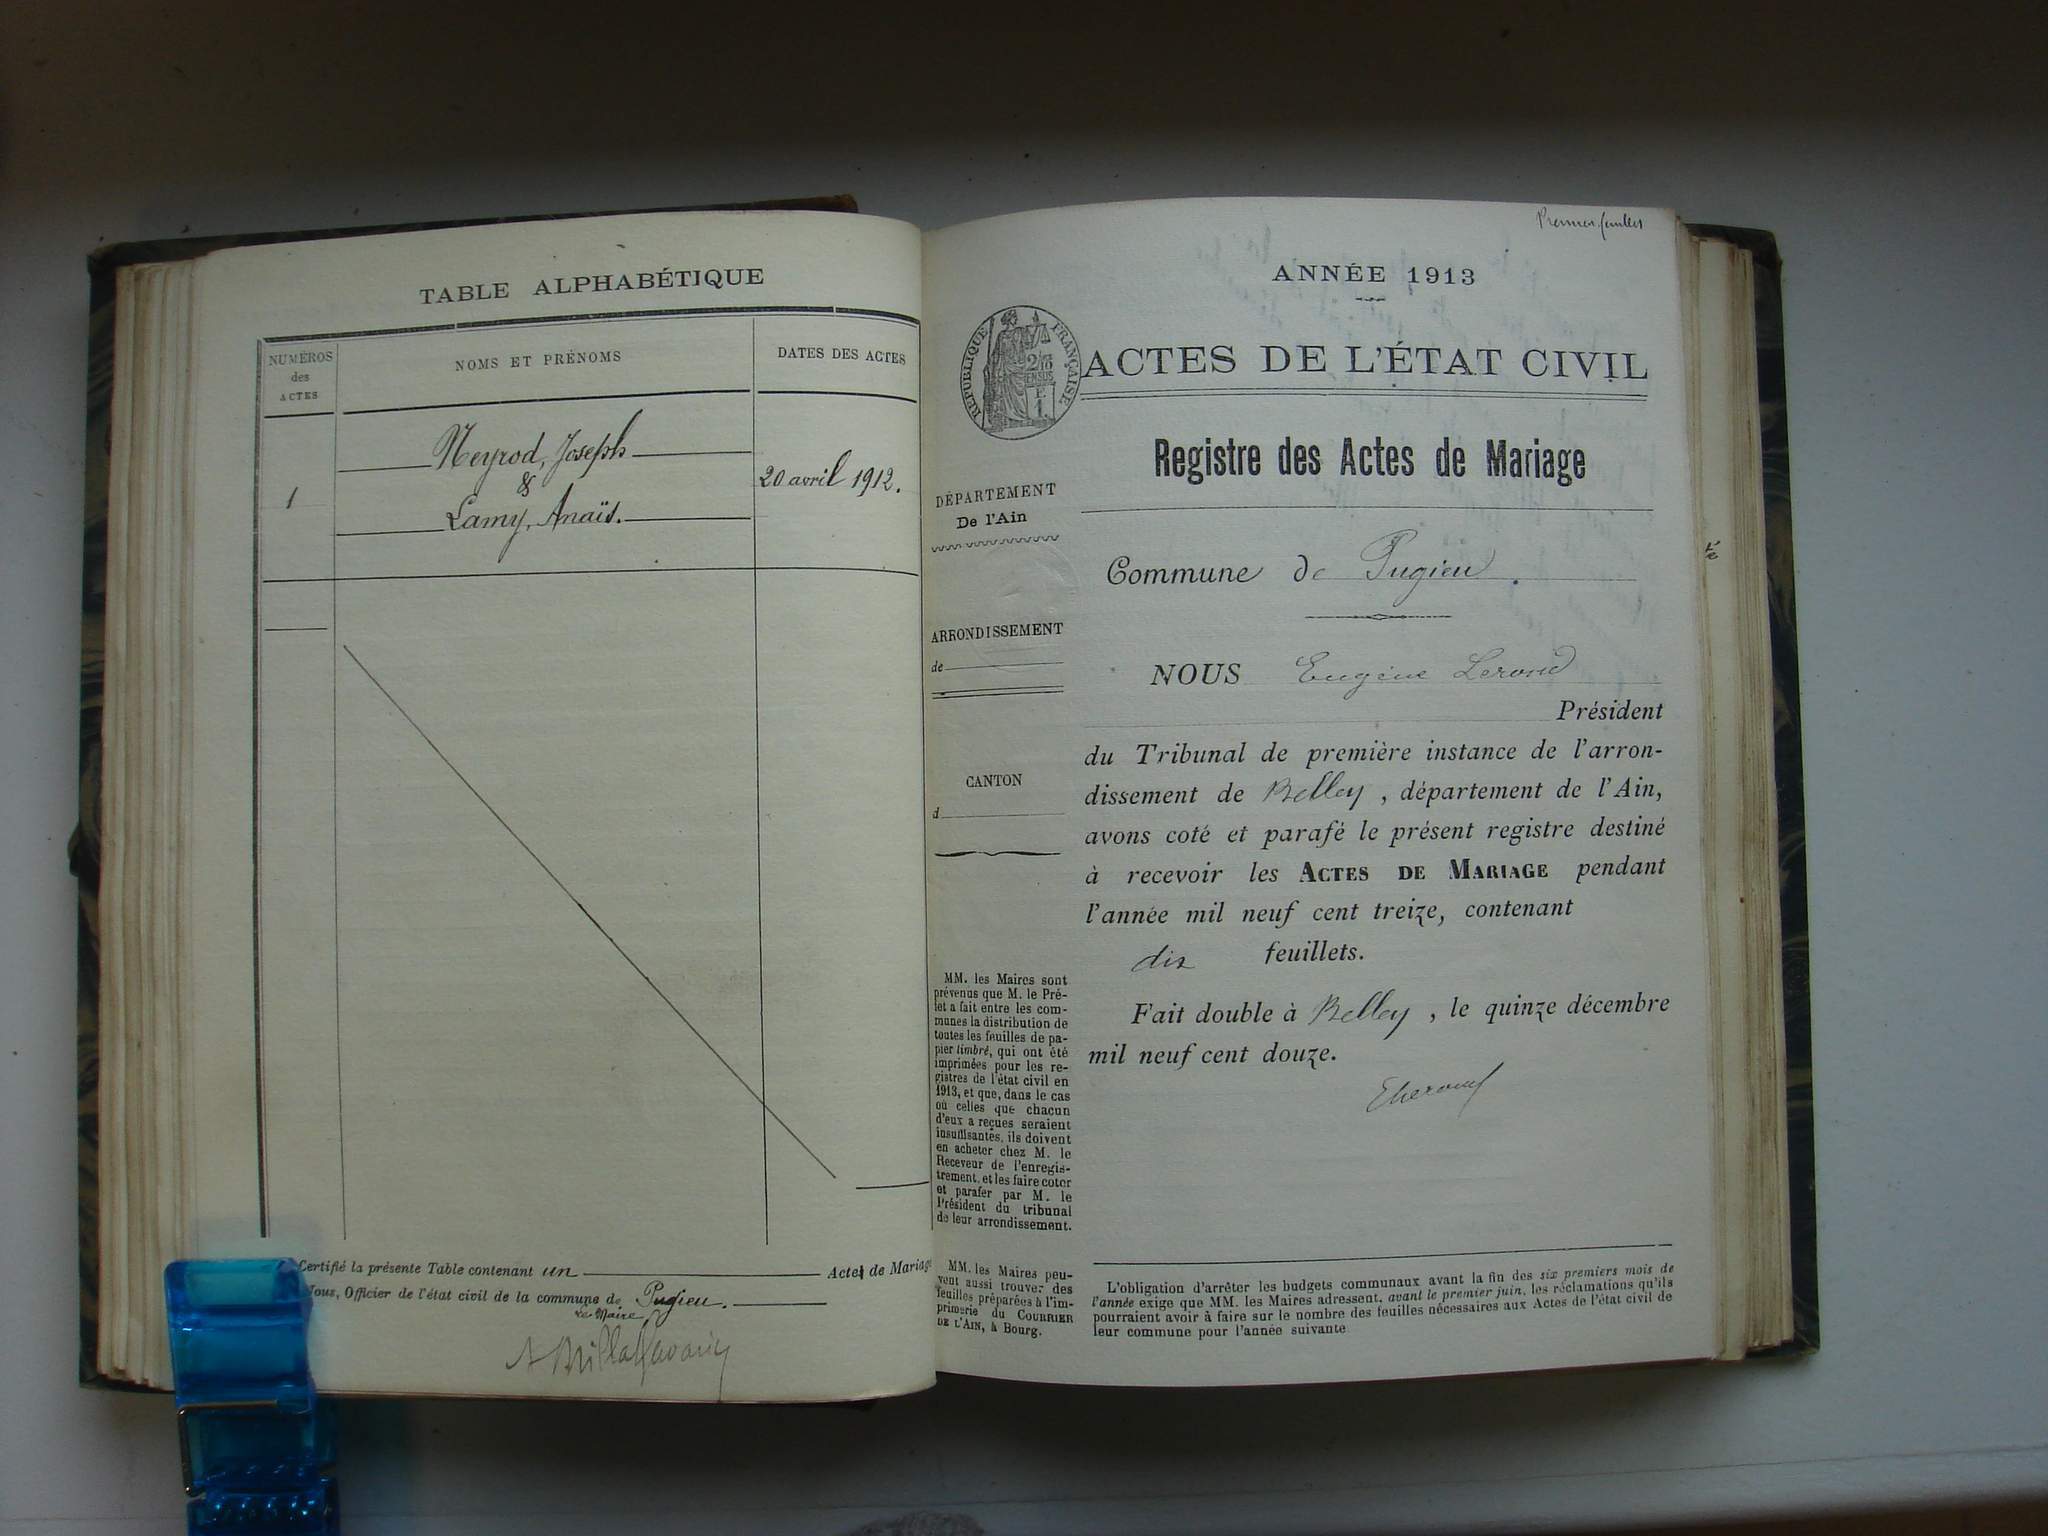 TABLE ALPHABÉTIQUE
NUMÉROS
des
ACTES
NOMS ET PRÉNOMS
DATES DES ACTES
1
Neyrod, Joseph
&
Lamy, Anaïs.
20 avril 1912.
Certifié la présente Table contenant un Acte de Mariage
Nous, Officier de l'état civil de la commune de Pugieu.
Le Maire
Premier feuillet
ANNÉE 1913
RÉPUBLIQUE FRANÇAISE
ACTES DE L'ÉTAT CIVIL
Registre des Actes de Mariage
DÉPARTEMENT
De l'Ain
ARRONDISSEMENT
de
CANTON
d
MM. les Maires sont
prévenus que M. le Pré-
fet a fait entre les com-
munes la distribution de
toutes les feuilles de pa-
pier timbré, qui ont été
imprimées pour les re-
gistres de l'état civil en
1913, et que, dans le cas
où celles que chacun
d'eux a reçues seraient
insuffisantes, ils doivent
en acheter chez M. le
Receveur de l'enregis-
trement, et les faire coter
et parafer par M. le
Président du tribunal
de leur arrondissement.
MM. les Maires peu-
vent aussi trouver des
feuilles préparées à l'im-
primerie du COURRIER
DE L'AIN, à Bourg.
Commune de Pugieu.
NOUS Eugène
Président
du Tribunal de première instance de l'arron-
dissement de Belley, département de l'Ain,
avons coté et parafé le présent registre destiné
à recevoir les ACTES DE MARIAGE pendant
l'année mil neuf cent treize, contenant
dix feuillets.
Fait double à Belley, le quinze décembre
mil neuf cent douze.
L'obligation d'arrêter les budgets communaux avant la fin des six premiers mois de
l'année exige que MM. les Maires adressent, avant le premier juin, les réclamations qu'ils
pourraient avoir à faire sur le nombre des feuilles nécessaires aux Actes de l'état civil de
leur commune pour l'année suivante